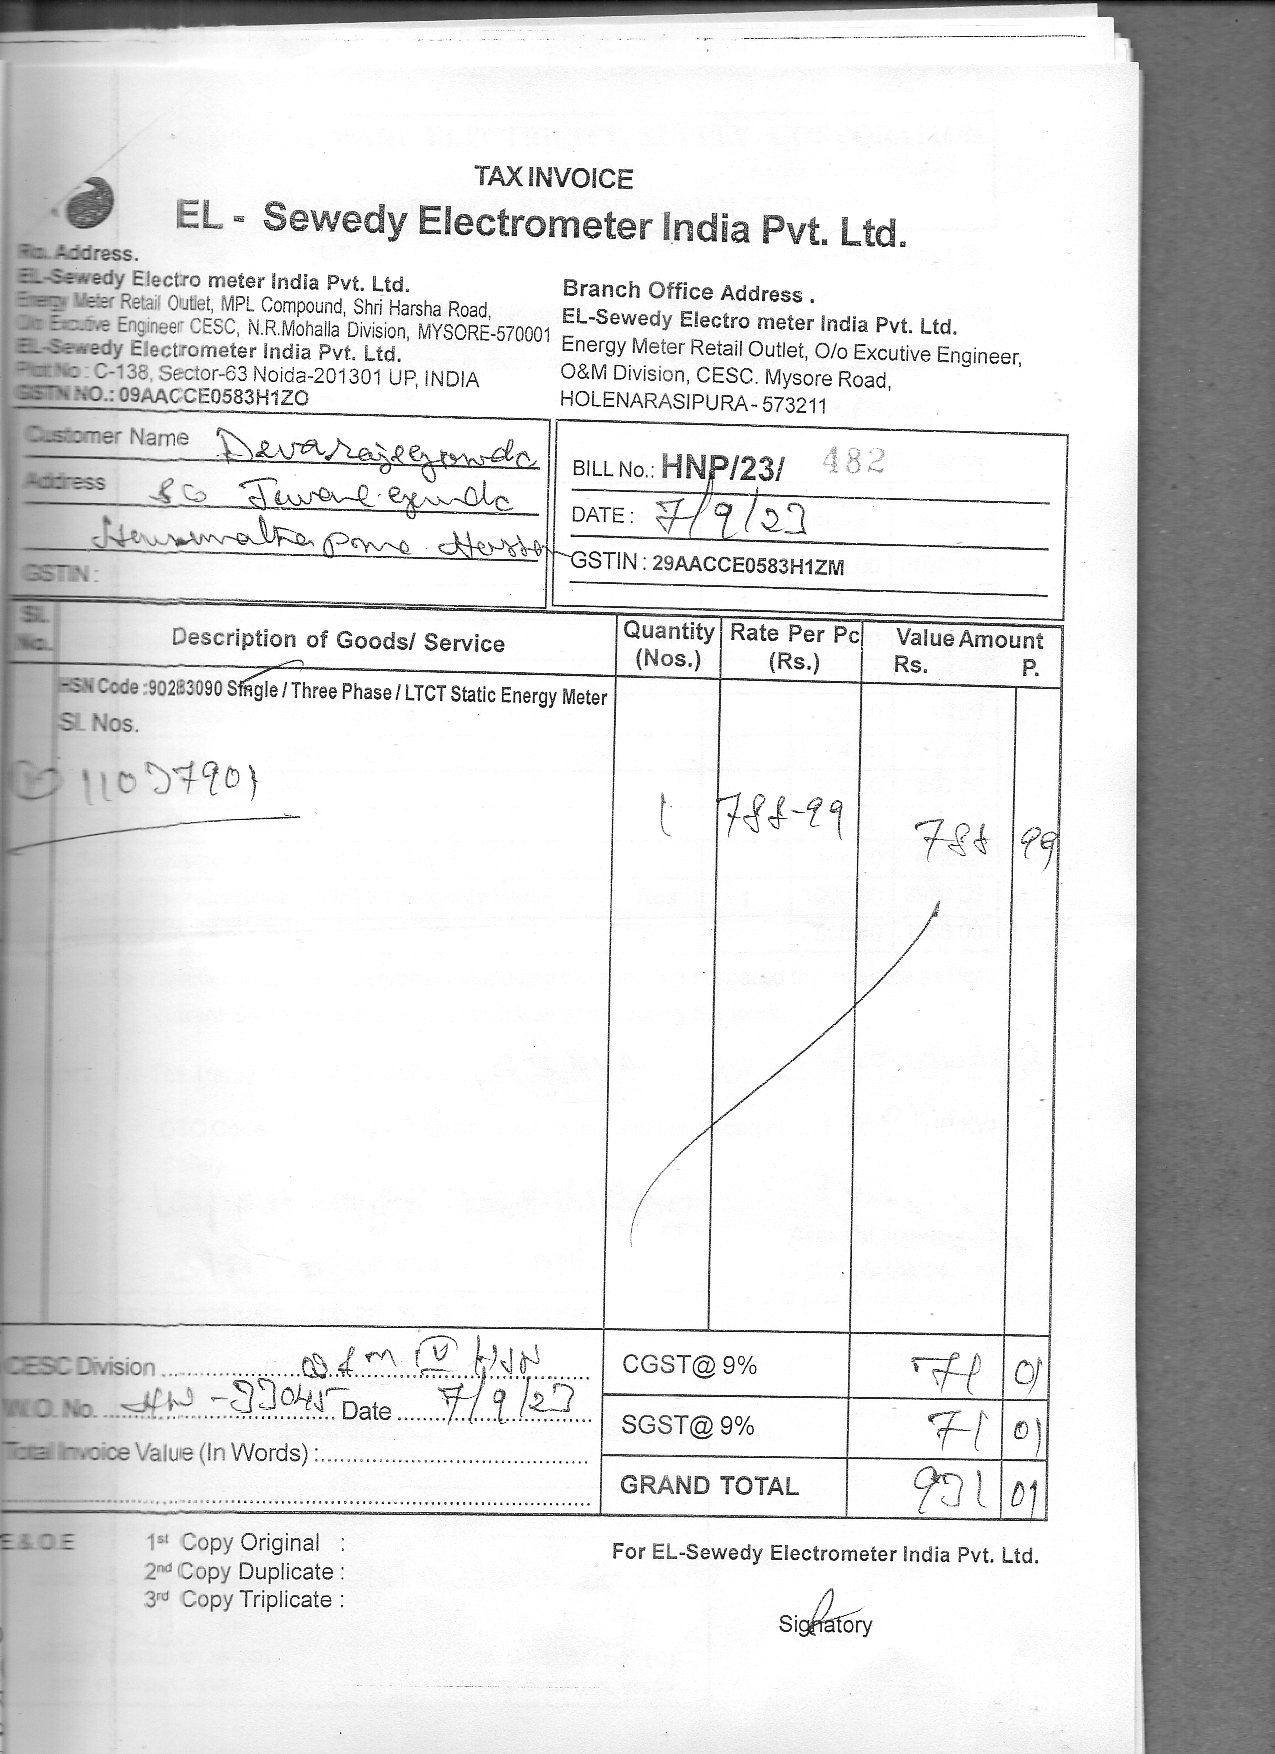 TAX INVOICE
EL - Sewedy Electrometer India Pvt. Ltd.
Ro. Address.
EL-Sewedy Electro meter India Pvt. Ltd.
Energy Meter Retail Outlet, MPL Compound, Shri Harsha Road,
O/o Excutive Engineer CESC, N.R.Mohalla Division, MYSORE-570001
EL-Sewedy Electrometer India Pvt. Ltd.
Plot No : C-138, Sector-63 Noida-201301 UP, INDIA
GSTN NO.: 09AACCE0583H1ZO
Branch Office Address .
EL-Sewedy Electro meter India Pvt. Ltd.
Energy Meter Retail Outlet, O/o Excutive Engineer,
O&M Division, CESC. Mysore Road,
HOLENARASIPURA - 573211
Customer Name Devarajegowda
Address
GSTIN :
BILL No.: HNP/23/ 482
DATE : 7/9/23
GSTIN : 29AACCE0583H1ZM
Sl. No. Description of Goods/ Service Quantity (Nos.) Rate Per Pc (Rs.) Value Amount Rs. P.
HSN Code :90283090 Single / Three Phase / LTCT Static Energy Meter
Sl. Nos.
11037901 1 788-99 788 99
CESC Division O&M IV HSN
CGST@ 9% 71 01
W.O. No. HN-33045 Date 7/9/23
SGST@ 9% 71 01
Total Invoice Value (In Words) :
GRAND TOTAL 931 01
E & O E
1st Copy Original :
2nd Copy Duplicate :
3rd Copy Triplicate :
For EL-Sewedy Electrometer India Pvt. Ltd.
Signatory